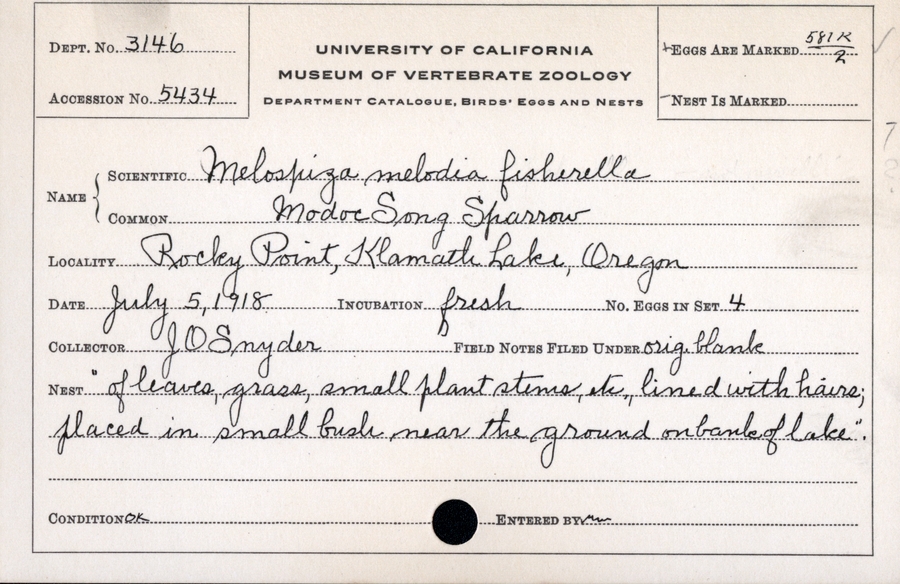 DEPT. No. 3146
ACCESSION No. 5434
UNIVERSITY OF CALIFORNIA
MUSEUM OF VERTEBRATE ZOOLOGY
DEPARTMENT CATALOGUE, BIRDS' EGGS AND NESTS
EGGS ARE MARKED 581K/2
NEST IS MARKED
NAME
SCIENTIFIC Melospiza melodia fisherella
COMMON Modoc Song Sparrow
LOCALITY Rocky Point, Klamath Lake, Oregon
DATE July 5, 1918 INCUBATION fresh No. EGGS IN SET 4
COLLECTOR J O Snyder FIELD NOTES FILED UNDER orig. blank
NEST "of leaves, grass, small plant stems, etc., lined with hairs;
placed in small bush near the ground on bank of lake".
CONDITION OK ENTERED BY